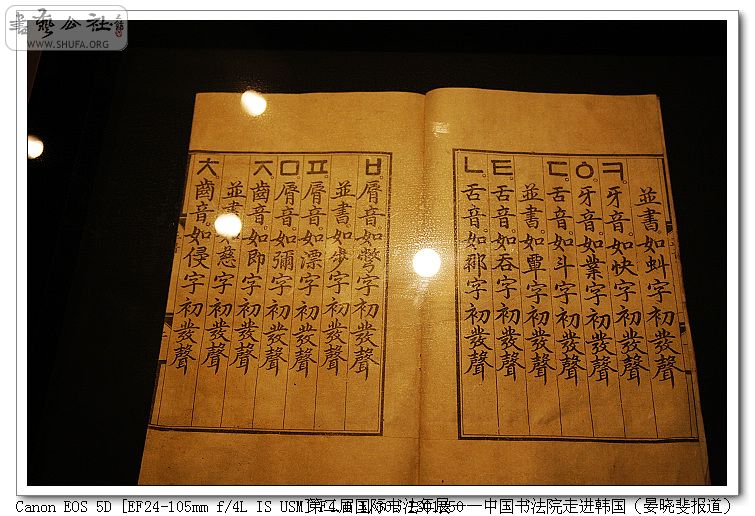 書藝公社
WWW.SHUFA.ORG
並書如虯字初發聲
ㅋ。牙音。如快字初發聲
ㆁ。牙音。如業字初發聲
ㄷ。舌音。如斗字初發聲
並書。如覃字初發聲
ㅌ。舌音。如呑字初發聲
ㄴ。舌音。如那字初發聲
ㅂ。脣音。如彆字初發聲
並書。如步字初發聲
ㅍ。脣音。如漂字初發聲
ㅁ。脣音。如彌字初發聲
ㅈ。齒音。如即字初發聲
並書 慈字初發聲
ㅊ。齒音。如侵字初發聲
Canon EOS 5D [EF24-105mm f/4L IS USM] 第二届国际书法年展 中国书法院走进韩国（晏晓斐报道）